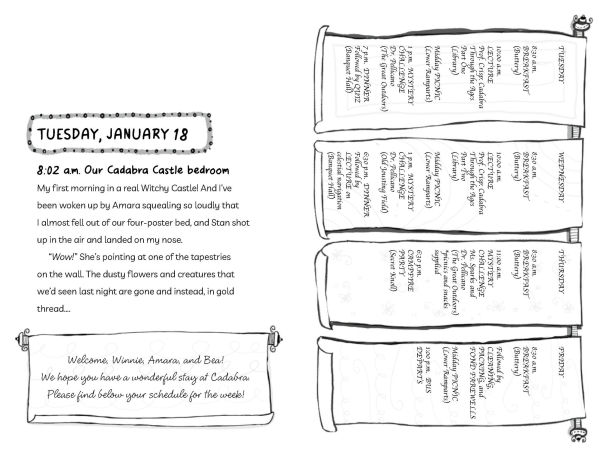 TUESDAY, JANUARY 18
8:02 a.m. Our Cadabra Castle bedroom
My first morning in a real Witchy Castle! And I've
been woken up by Amara squealing so loudly that
I almost fell out of our four-poster bed, and Stan shot
up in the air and landed on my nose.
"Wow!" She's pointing at one of the tapestries
on the wall. The dusty flowers and creatures that
we'd seen last night are gone and instead, in gold
thread...
Welcome, Winnie, Amara, and Bea!
We hope you have a wonderful stay at Cadabra.
Please find below your schedule for the week!
TUESDAY
8:30 a.m.
BREAKFAST
(Buttery)
10:00 a.m.
LECTURE
Prof. Crisp: Cadabra
Through the Ages
Part One
(Library)
Midday PICNIC
(Lower Ramparts)
1 p.m. MYSTERY
CHALLENGE
Dr. Pellicano
(The Great Outdoors)
7 p.m. DINNER
Followed by QUIZ
(Banquet Hall)
WEDNESDAY
8:30 a.m.
BREAKFAST
(Buttery)
10:00 a.m.
LECTURE
Prof. Crisp: Cadabra
Through the Ages:
Part Two
(Library)
Midday PICNIC
(Lower Ramparts)
1 p.m. MYSTERY
CHALLENGE
Dr. Pellicano
(Old Jousting Field)
6:30 p.m. DINNER
Followed by
LECTURE on
celestial navigation
(Banquet Hall)
THURSDAY
8:30 a.m.
BREAKFAST
(Buttery)
11:00 a.m.
MYSTERY
CHALLENGE
Ms. Sparks and
Dr. Pellicano
(The Great Outdoors)
*picnics and snacks
supplied
6:30 p.m.
CAMPFIRE
PARTY
(Secret Knoll)
FRIDAY
8:30 a.m.
BREAKFAST
(Buttery)
Followed by
CLEANING,
PACKING, and
FOND FAREWELLS
Midday PICNIC
(Lower Ramparts)
1:00 p.m. BUS
DEPARTS